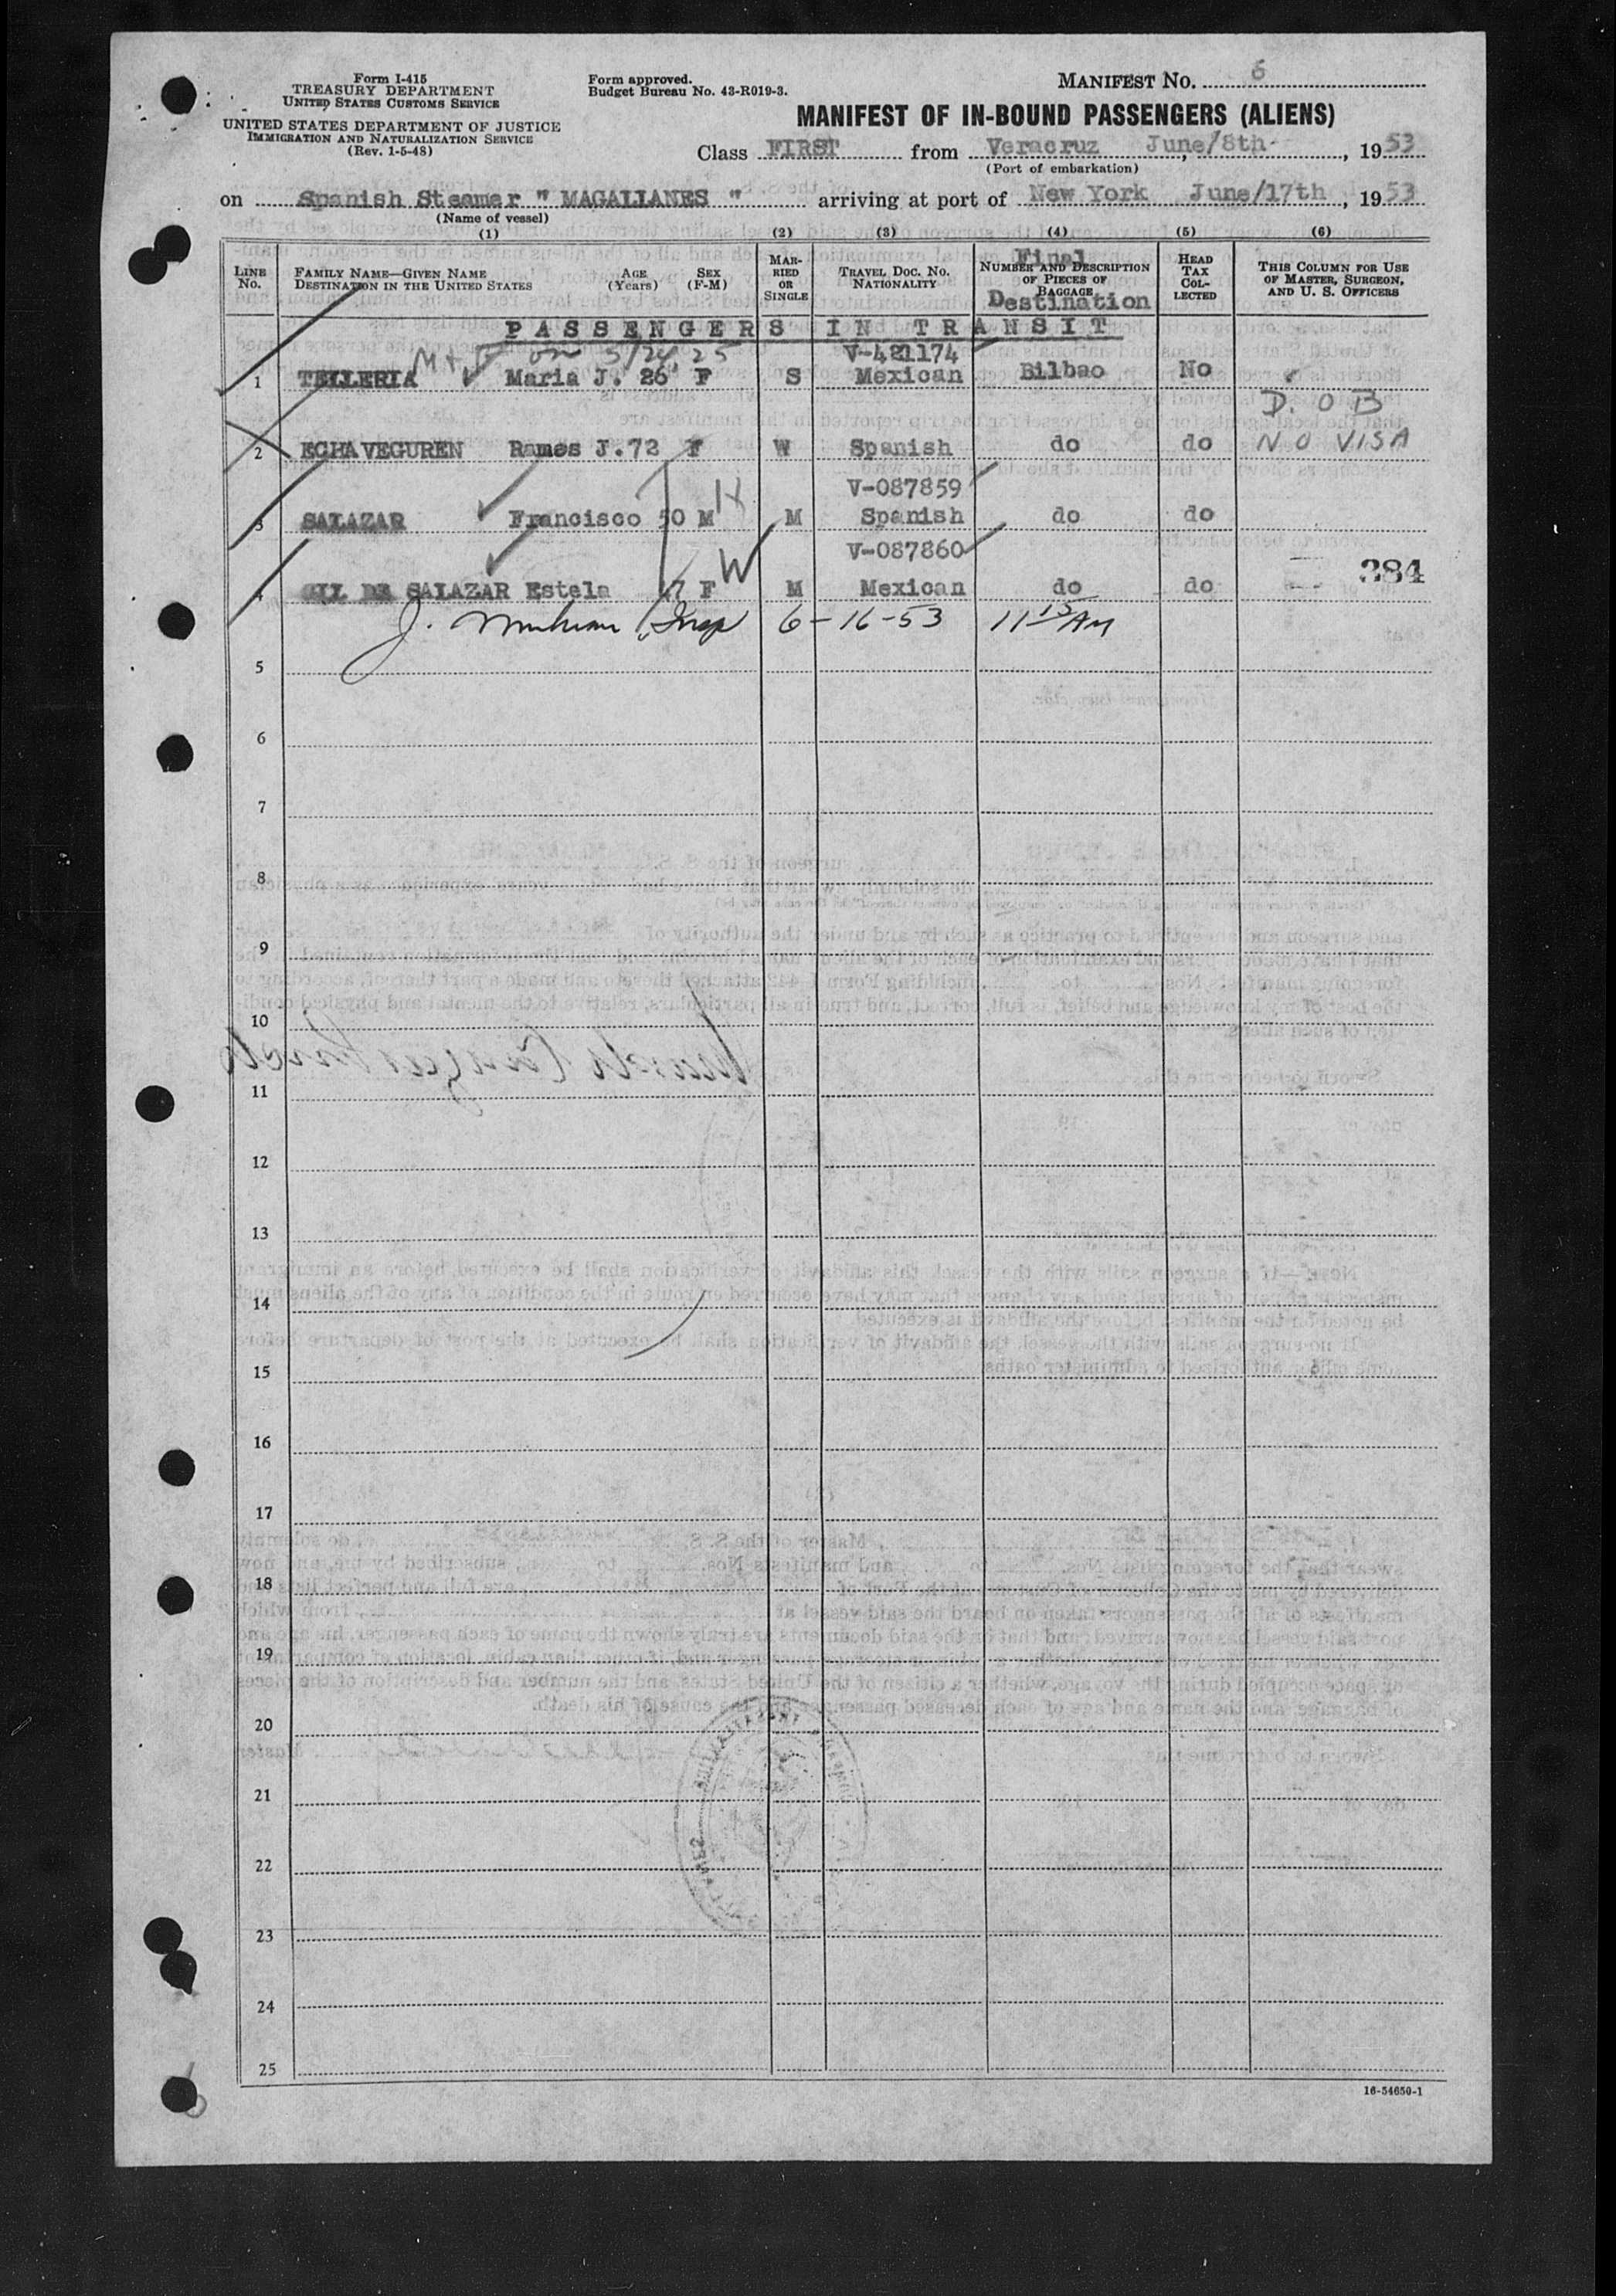 Form I-415
TREASURY DEPARTMENT
UNITED STATES CUSTOMS SERVICE
UNITED STATES DEPARTMENT OF JUSTICE
IMMIGRATION AND NATURALIZATION SERVICE
(Rev. 1-5-48)
Form approved.
Budget Bureau No. 43-R019-3.
MANIFEST NO. 6
MANIFEST OF IN-BOUND PASSENGERS (ALIENS)
Class FIRST from Veracruz June/8th, 1953
(Port of embarkation)
on Spanish Steamer " MAGALLANES " arriving at port of New York June/17th, 1953
(Name of vessel)
(1) (2) (3) (4) (5) (6)
LINE NO. FAMILY NAME—GIVEN NAME DESTINATION IN THE UNITED STATES AGE (Years) SEX (F-M) MARRIED OR SINGLE TRAVEL DOC. NO. NATIONALITY NUMBER AND DESCRIPTION OF PIECES OF BAGGAGE Final Destination HEAD TAX COLLECTED THIS COLUMN FOR USE OF MASTER, SURGEON, AND U. S. OFFICERS
PASSENGERS IN TRANSIT
V-421174
1 TELLERIA Maria J. 26 F S Mexican Bilbao No
D. O B
2 ECHAVEGUREN Rames J. 72 F W Spanish do do NO VISA
V-087859
3 SALAZAR Francisco 50 M H M Spanish do do
V-087860
4 GIL DE SALAZAR Estela 47 F W M Mexican do do 384
J. Insp 6-16-53 11 15 AM
5
6
7
8
9
10
11
12
13
14
15
16
17
18
19
20
21
22
23
24
25
16-54650-1